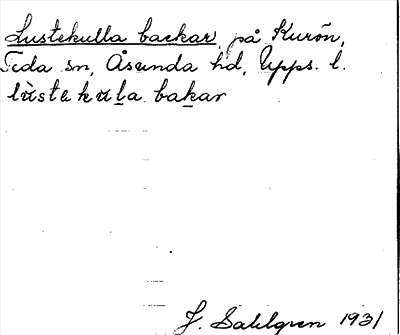 Lustekulla backar, på Kurön,
Teda sn, Åsunda hd, Upps. l.
lùsteku̲l̲a bak̲ar
J. Sahlgren 1931